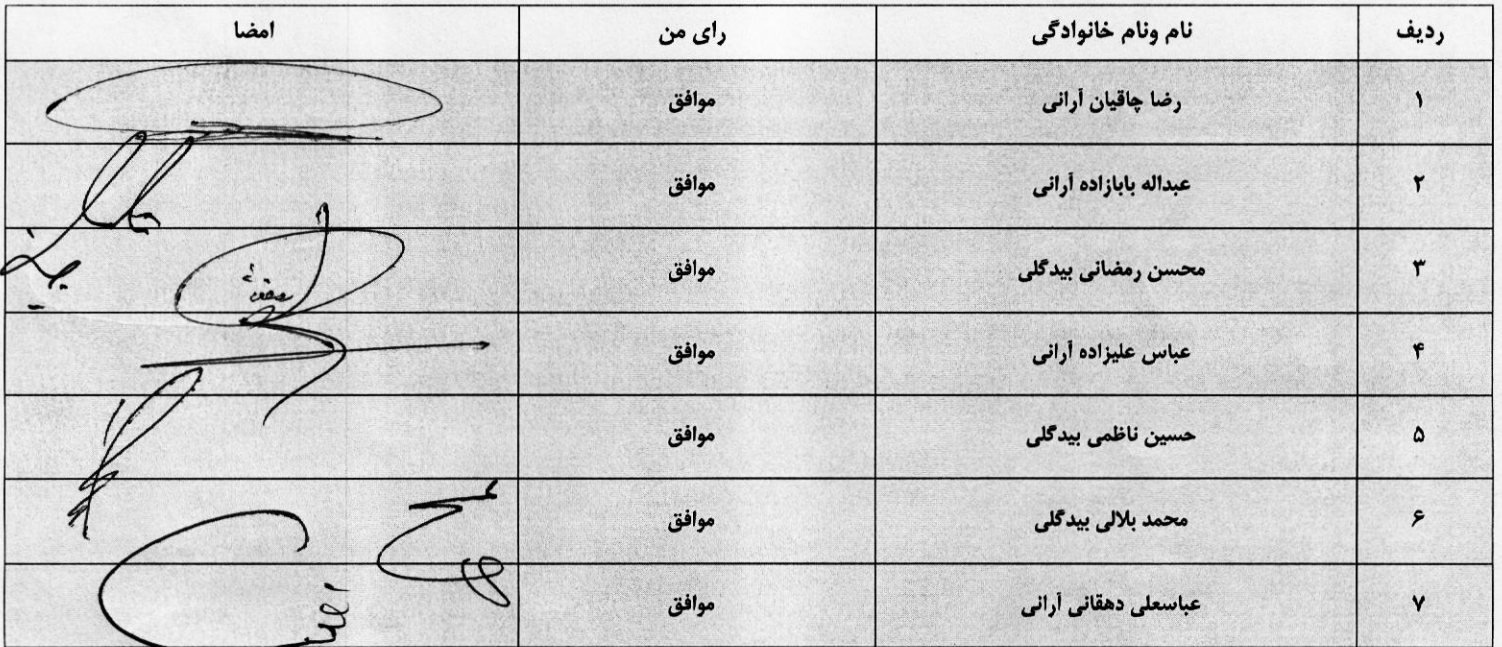 ردیف نام ونام خانوادگی رای من امضا
۱ رضا چاقیان آرانی موافق
۲ عبداله بابازاده آرانی موافق
۳ محسن رمضانی بیدگلی موافق
۴ عباس علیزاده آرانی موافق
۵ حسین ناظمی بیدگلی موافق
۶ محمد بلالی بیدگلی موافق
۷ عباسعلی دهقانی آرانی موافق